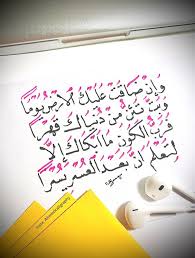 وَإِن ضَاقَت عَلَيكَ الأرضُ يَومًا
وَبِتَّ تَئِنُّ مِن دُنيَاكَ قَهرًا
فَرَبُّ الكَونِ مَا أبكَاكَ إلَّا
لِتَعلَمَ أنَّ بَعدَ العُسرِ يُسرًا